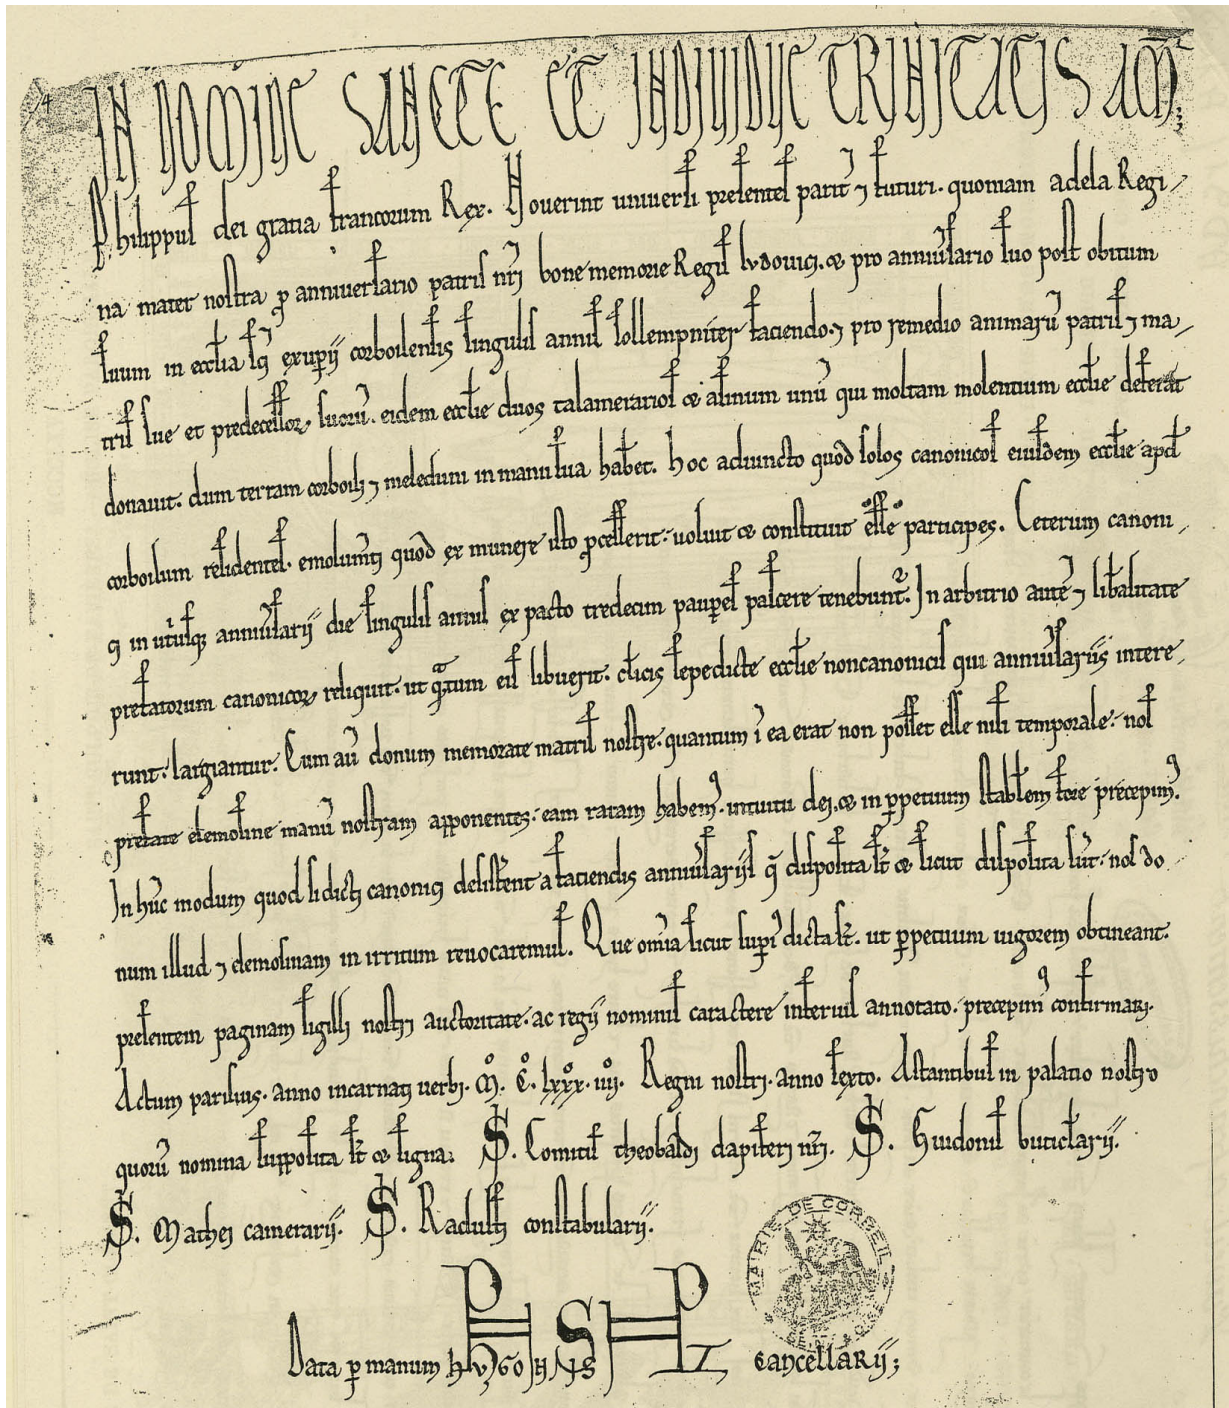 IN NOMINE SANCTE ET INDIVIDUE TRINITATIS AM̅;
Philippus dei gratia francorum Rex. Noverint universi presentes parit ⁊ futuri. quoniam adela Regi-
na mater nostra ꝓ anniversario patris nr̅i bone memorie Regis lvdovici. & pro annivsario suo post obitum
suum in eccl̅ia sc̅i exuperii corboilensis singulis annis sollempniter faciendo. ⁊ pro remedio animarū patris ⁊ ma-
tris sue et predecessoꝝ suorū. eidem eccl̅ie duos talamerarios & asinum unū qui moltam molentium eccl̅ie deferat
donavit. dum terram corboili ⁊ meledum in manu sua hab̅et. hoc adiuncto quod solos canonicos eiusdem eccl̅ie apud
corboilum residentes. emolum̅ti quod ex munere isto ꝓcesserit. voluit & constituit esse participes. Ceterum canoni-
ci in ut̅usqꝫ annivsarii die singulis annis ex pacto tredecim paup̅es pascere tenebunt̅. In arbitrio autē ⁊ lib̅alitate
prefatorum canonicoꝝ reliquit. ut q̅ntum eis libuerit. cl̅icis sepedicte eccl̅ie non canonicis qui annivsariis intere-
runt. largiantur. Cum au̅ donum memorate matris nostre. quantum ī ea erat non posset esse nisi temporale. nos
prefate elemosine manū nostram apponentes. eam ratam habem⁹. intuitu dei. & in ꝑpetuum stabl̅em fore precepim⁹.
In hūc modum quod si dicti canonici desist̅ent a faciendis annivsariis q̅ disposita st̅ & sicut disposita sūt. nos do-
num illud ⁊ elemosinam in irritum revocaremus. Que om̅ia sicut sup̅i dicta st̅. ut ꝑpetuum vigorem obtineant.
presentem paginam sigilli nostri auctoritate. ac regii nominis caractere inferius annotato. precepim⁹ confirmari.
Actum parisius. anno incarnati verbi. M̊. C̊. lxxx̊. iiii̊. Regni nostri. anno sexto. Astantibus in palatio nostro
quorū nomina supposita st̅ & signa. S. Comitis theobaldi dapiferi nr̅i. S. Guidonis buticlarii.
S. Mathei camerarii. S. Radulfi constabularii.
MAIRIE DE CORBEIL
Data ꝑ manum hvgonis cancellarii;